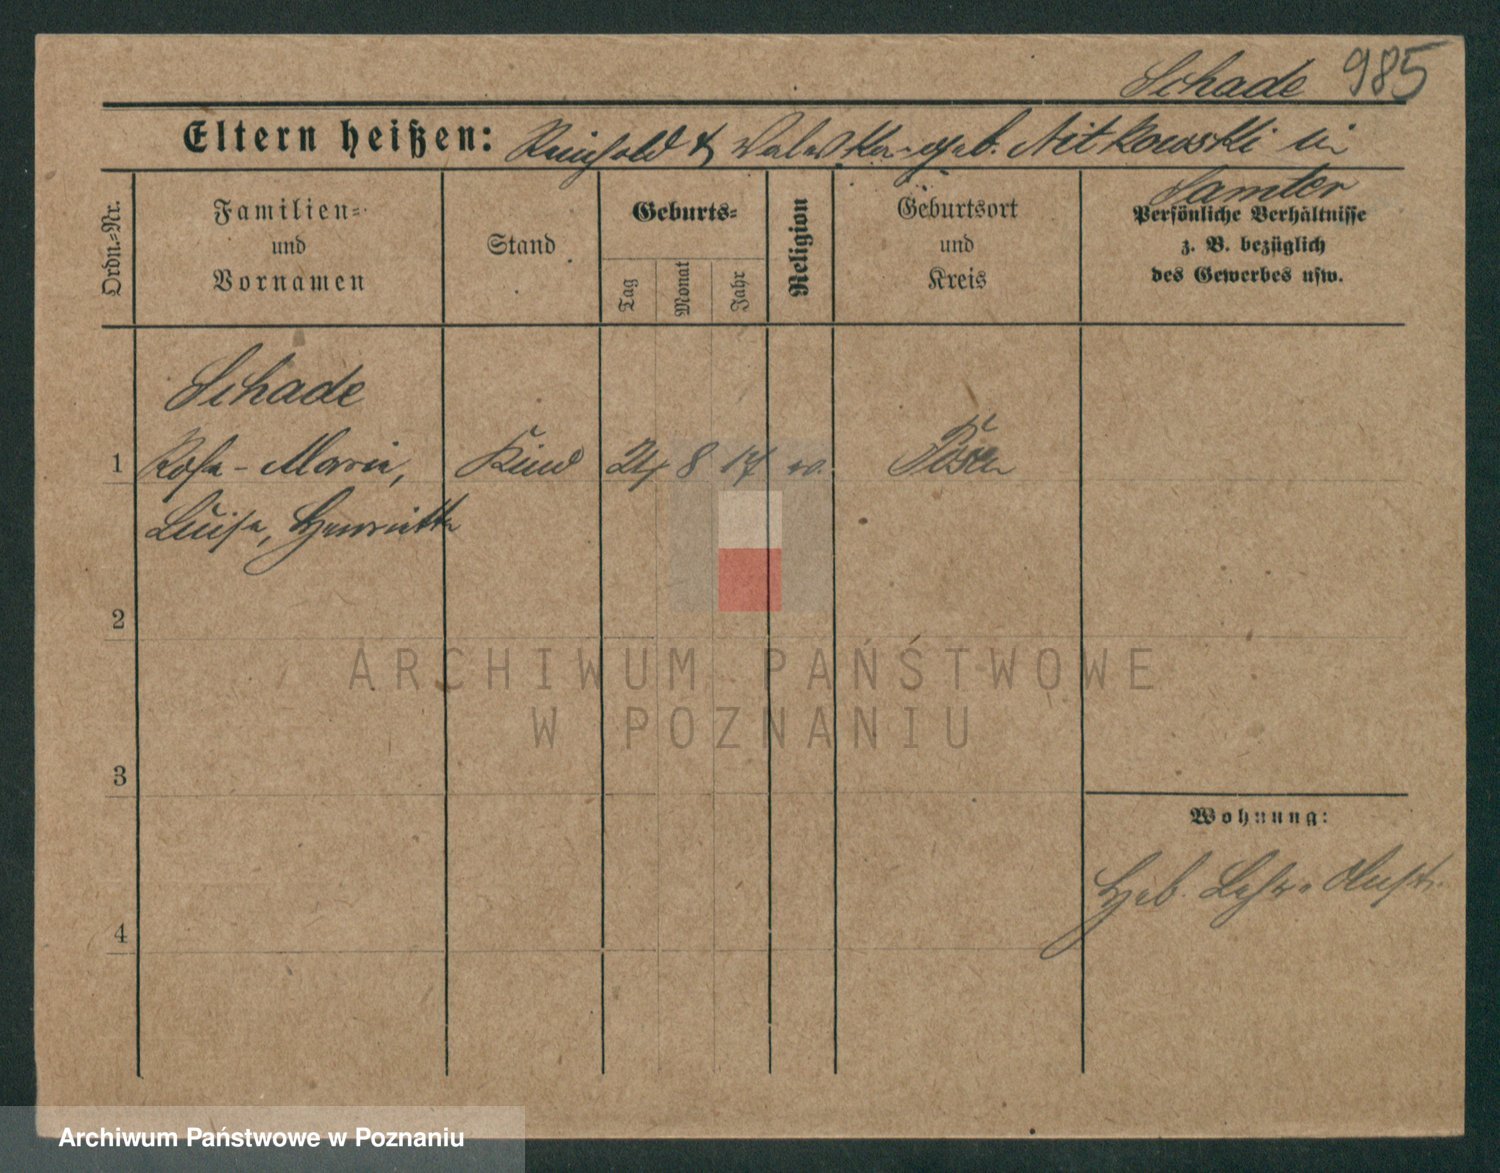 Schade 985
Eltern heißen: Reinhold & Valeska geb. Nitkowski in
Samter
Ordn.=Nr.
Familien=
und
Vornamen
Stand
Geburts=
Tag
Monat
Jahr
Religion
Geburtsort
und
Kreis
Persönliche Verhältnisse
z. B. bezüglich
des Gewerbes usw.
Schade
1 Rosa - Maria, Kind 24 8 17 Posen
Luise, Henriette
2
3
4
Wohnung:
Heb. Lehr
ARCHIWUM PAŃSTWOWE
W POZNANIU
Archiwum Państwowe w Poznaniu